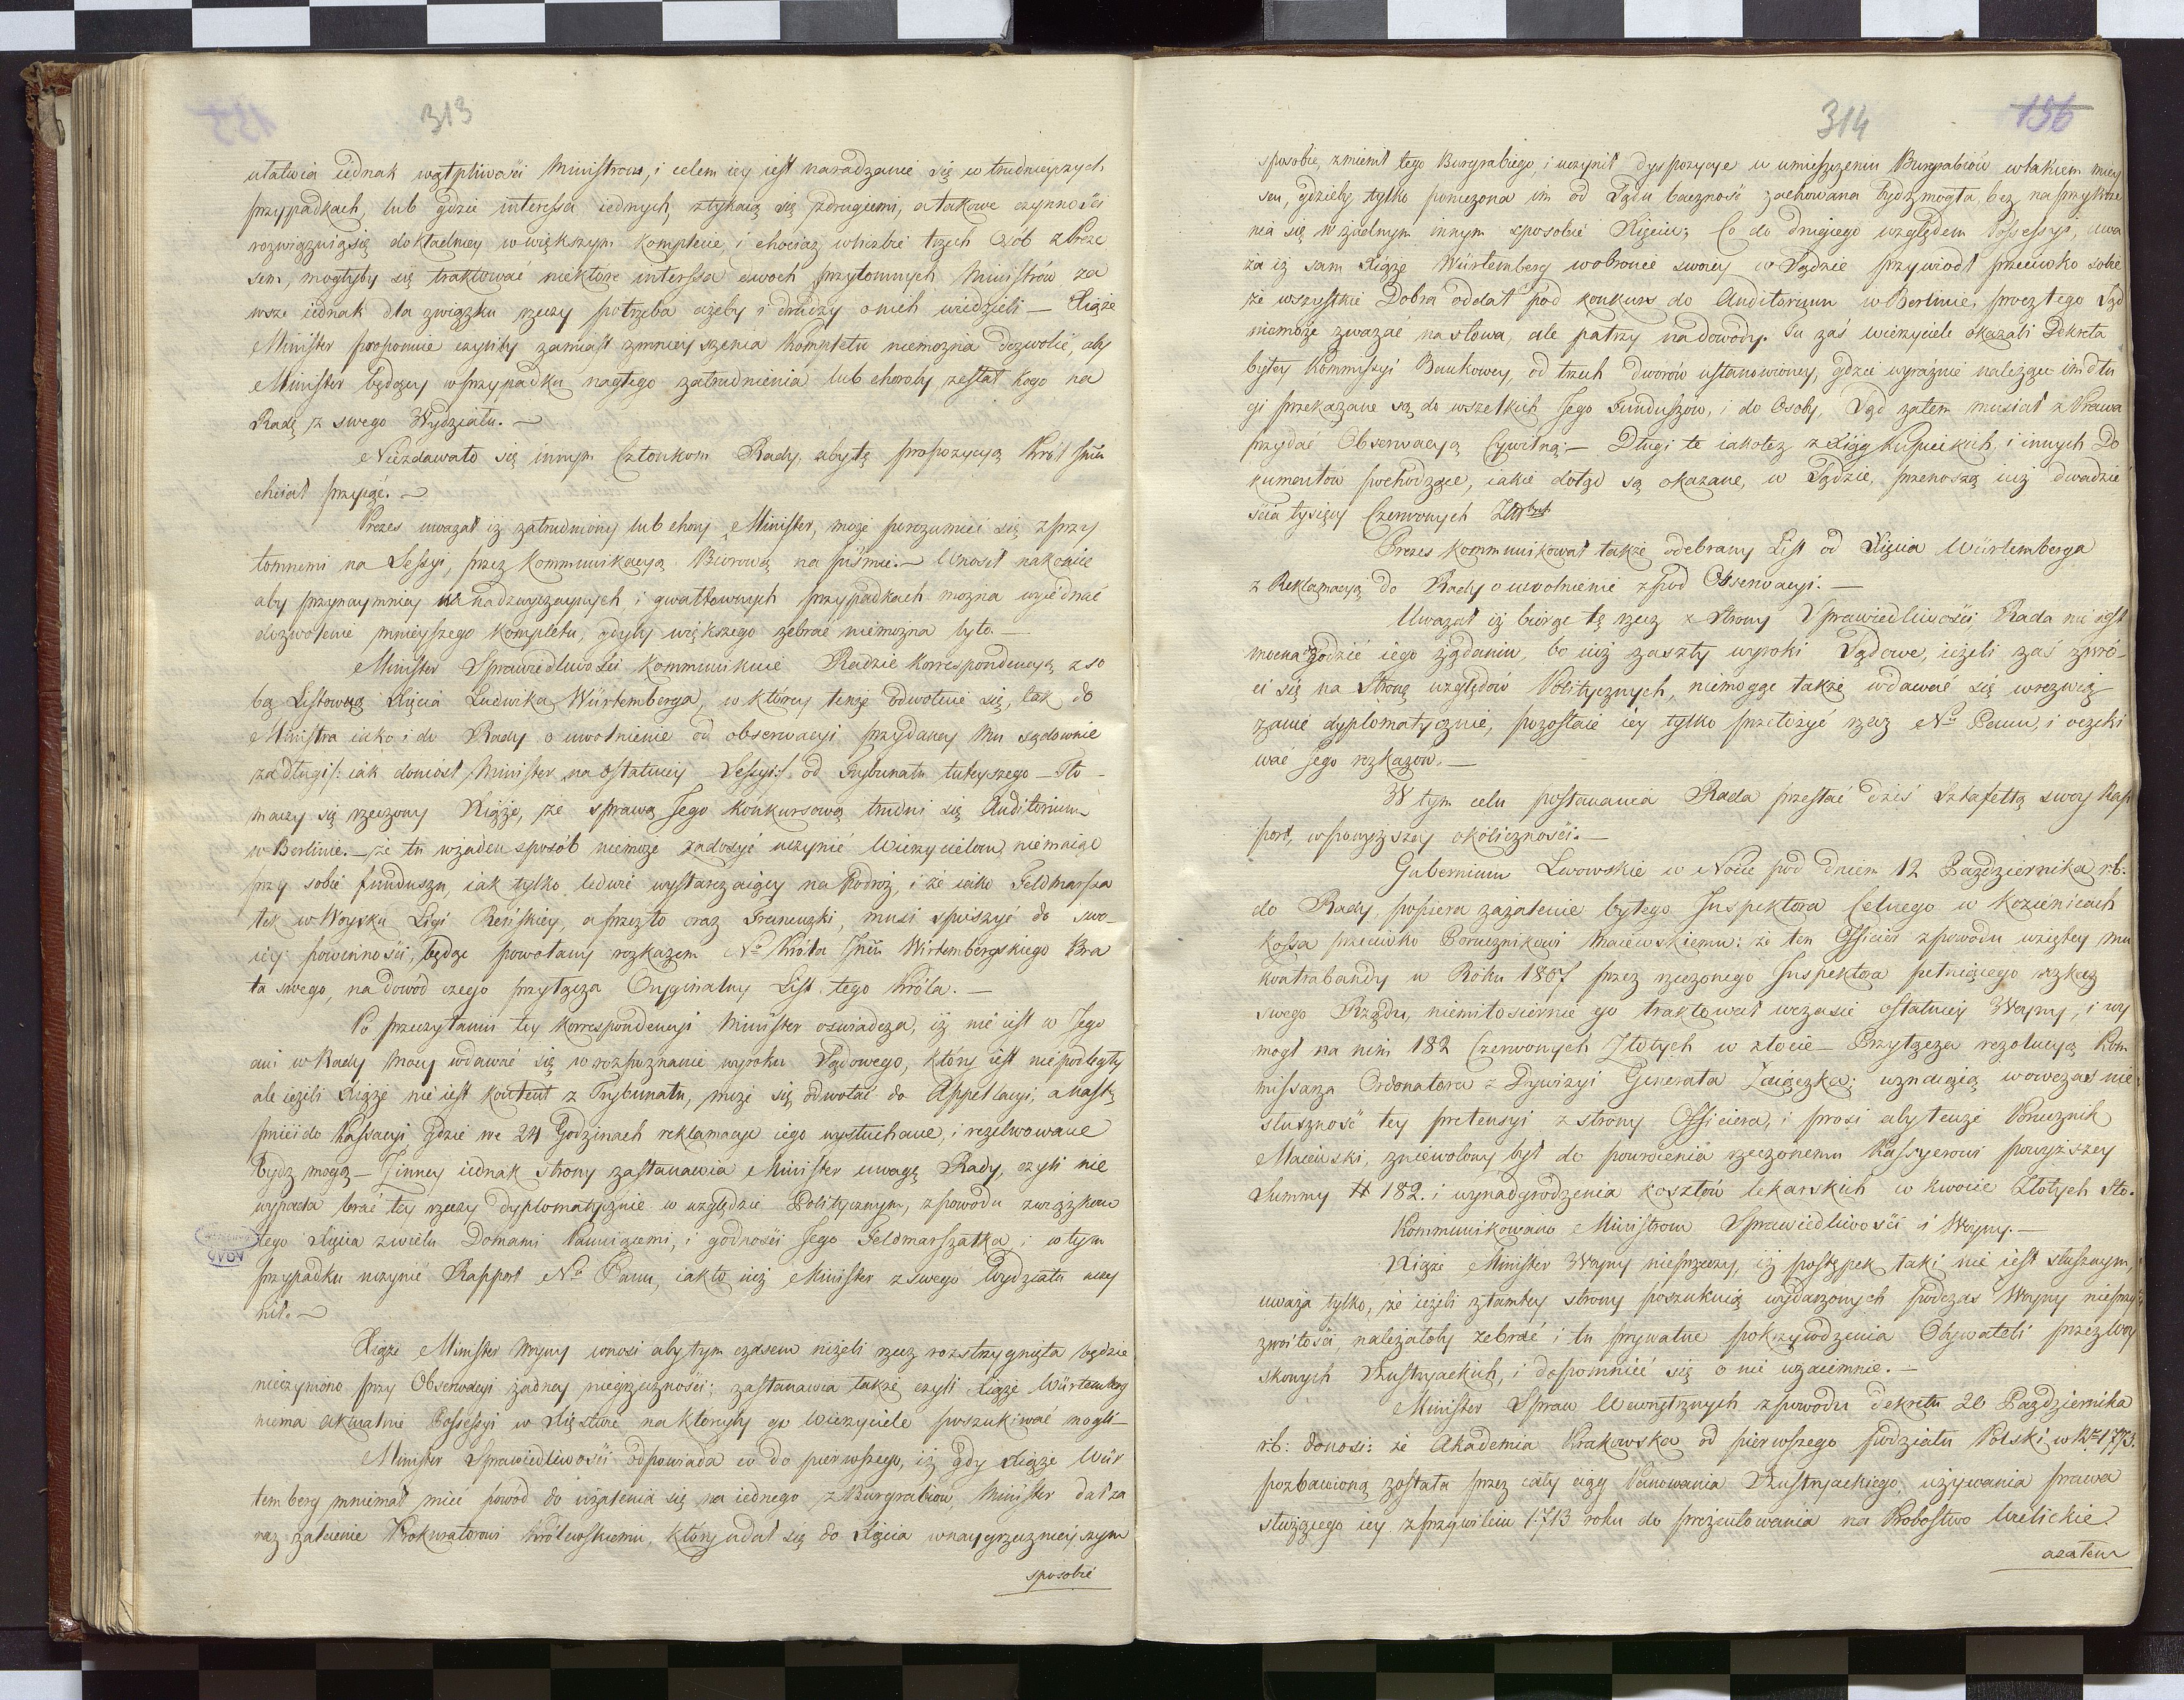 313
ułatwia iednak wątpliwości Ministrom, i celem iey iest naradzanie się w trudnieyszych
przypadkach, lub gdzie interessa iednych stykaią się z drugiemi, a takowe czynności
rozwiązuią się dokładniey w większym komplecie, i chociaż w liczbie trzech Osób z Preze
sem, mogłyby się traktować niektóre interessa dwoch przytomnych Ministrów za
wsze iednak dla związku rzeczy potrzeba ażeby i drudzy o nich wiedzieli — Xiąże
Minister proponuie czyliby zamiast zmnieyszenia kompletu niemożna dozwolić, aby
Minister będący w przypadku nagłego zatrudnienia lub choroby zesłał kogo na
Radę z swego Wydziału. —
Niezdawało się innym Członkom Rady, aby tę propozycyą Król Jmć
chciał przyiąć. —
Prezes uważał iż zatrudniony lub chory Minister, może porozumieć się z przy
tomnemi na Sessyi, przez kommunikacyą Biurową na piśmie. — Wnosił nakoniec
aby przynaymniey w nadzwyczaynych i gwałtownych przypadkach można wyiednać
dozwolenie mnieyszego kompletu, gdyby większego zebrać niemożna było. —
Minister Sprawiedliwości kommunikuie Radzie korrespondencyą z so
bą Listowną Xięcia Ludwika Würtemberga, w którey tenże odwołuie się, tak do
Ministra iako i do Rady o uwolnienie od obserwacyi przydaney mu sądownie
za długi /: iak doniósł Minister na ostatniey Sessyi :/ od Trybunału tuteyszego — Tło-
maczy się rzeczony Xiąże, że sprawą Jego konkursową trudni się Auditorium
w Berlinie. — że tu w żaden sposób niemoże zadosyć uczynić Wierzycielom niemaiąc
przy sobie funduszu, iak tylko ledwie wystarczaiący na Podróż, i że iako Feldmarsza
łek w Woysku Ligi Reńskiey, a przez to oraz Francuzki, musi spieszyć do swo-
iey powinności, będąc powołany rozkazem Nº Króla Jmci Wirtembergskiego Bra
ta swego, na dowód czego przyłącza Oryginalny List tego Króla. —
Po przeczytaniu tey korrespondencyi Minister oświadcza, iż nie iest w Jego
ani w Rady mocy wdawać się w rozpoznanie wyroku Sądowego, który iest niepodległy
ale ieżeli Xiąże nie iest kontent z Trybunału, może się odwołać do Appellacyi, a nastę
pnie do Kassacyi, gdzie we 24 Godzinach reklamacye iego wysłuchane, i rezolwowane
bydź mogą — Z inney iednak strony zastanawia Minister uwagę Rady, czyli nie
wypada brać tey rzeczy dyplomatycznie w względzie Politycznym, z powodu związków
tego Xięcia z wielu Domami Panuiącemi, i godności Jego Feldmarszałka, i w tym
przypadku uczynić Rapport Nº Panu, iak to iuż Minister z swego Wydziału uczy
nił. —
Xiąże Minister Woyny wnosi aby tym czasem niżeli rzecz rozstrzygnięta będzie
nieczyniono przy Obserwacyi żadney niegrzeczności; zastanawia także czyli Xiąże Würtemberg
niema aktualnie Possessyi w Xięstwie na któreyby go Wierzyciele poszukiwać mogli —
Minister Sprawiedliwości odpowiada co do pierwszego, iż gdy Xiąże Wür
temberg mniemał mieć powód do użalenia się na iednego z Burgrabiów, Minister dał za
raz zalecenie Prokuratorowi Królewskiemu, który udał się do Xięcia w naygrzecznieyszym
sposobie
314
156
sposobie, zmienił tego Burgrabiego, i uczynił dyspozycye u umieszczeniu Burgrabiów w takiem miey
scu, gdzieby tylko poruczona im od Sądu baczność zachowana bydź mogła, bez naprzykrze
nia się w żadnym innym sposobie Xięciu; Co do drugiego względem Possessyi, uwa
ża iż sam Xiąże Würtemberg w obronie swoiey w Sądzie przywiódł przeciwko sobie
że wszystkie Dobra oddał pod konkurs do Auditorium w Berlinie, prócz tego Sąd
niemoże zważać na słowa, ale patrzy na dowody. Tu zaś wierzyciele okazali Dekreta
byłey kommissyi Bankowey, od trzech dworów ustanowioney, gdzie wyraźnie należące im dłu
gi przekazane są do wszelkich Jego Funduszów, i do Osoby, Sąd zatem musiał z Prawa
przydać Obserwacyą Cywilną: — Długi te iakoteż z Xiąg kupieckich, i innych Do
kumentów pochodzące, iakie dotąd są okazane, w Sądzie, przenoszą iuż dwadzie
ścia tysięcy Czerwonych Złłtych
Prezes kommunikował także odebrany List od Xięcia Würtemberga
z Reklamacyą do Rady o uwolnienie z pod Obserwacyi. —
Uważał iż biorąc tę rzecz z Strony Sprawiedliwości Rada nie iest
mocna zgodzić iego żądaniu, bo iuż zaszły wyroki Sądowe, ieżeli zaś zwró-
ci się na Stronę względów Politycznych, niemogąc także wdawać się w rozwią
zanie dyplomatycznie, pozostaie iey tylko przełożyć rzecz Nº Panu, i oczeki
wać Jego rozkazów. —
W tym celu postanawia Rada przesłać dziś Sztafettą swoy Rap
port, w powyższey okoliczności. —
Gubernium Lwowskie w Nocie pod dniem 12 Pazdziernika r.b.
do Rady, popiera zażalenie byłego Inspektora Celnego w Kozienicach
Kossa przeciwko Porucznikowi Maiewskiemu: że ten Officier z powodu wziętey mu
kontrabandy w Roku 1807 przez rzeczonego Inspektora pełniącego rozkaz
swego Rządu, niemiłosiernie go traktował w czasie ostatniey Woyny, i wy
mogł na nim 182 Czerwonych Złotych w złocie — Przyłącza rezolucyą Kom
missarza Ordonatora z Dywizyi Generała Zaiączka; uznaiącą wówczas nie
słuszność tey pretensyi z strony Officiera, i prosi aby tenże Porucznik
Maiewski, zniewolony był do powrócenia rzeczonemu Kassyerowi powyższey
Summy # 182. i wynadgrodzenia kosztów lekarskich w kwocie Złotych Sto.
Kommunikowano Ministrom Sprawiedliwości i Woyny. —
Xiąże Minister Woyny nieprzeczy, iż postępek taki nie iest słusznym,
uważa tylko, że ieżeli z tamtey strony poszukuią wydarzonych podczas Woyny nieprzy
zwoitości, należałoby zebrać i tu prywatne pokrzywdzenia Obywateli przez Woy
skowych Austryackich, i dopomnieć się o nie wzaiemnie. —
Minister Spraw Wewnętrznych z powodu dekretu 20 Pazdziernika
r.b: donosi: że Akademia Krakowska od pierwszego podziału Polski w Rº 1773.
pozbawioną została przez cały ciąg Panowania Austryackiego używania prawa
służącego iey z przywileiu 1713 roku do prezentowania na Probostwo Wielickie
a zatem